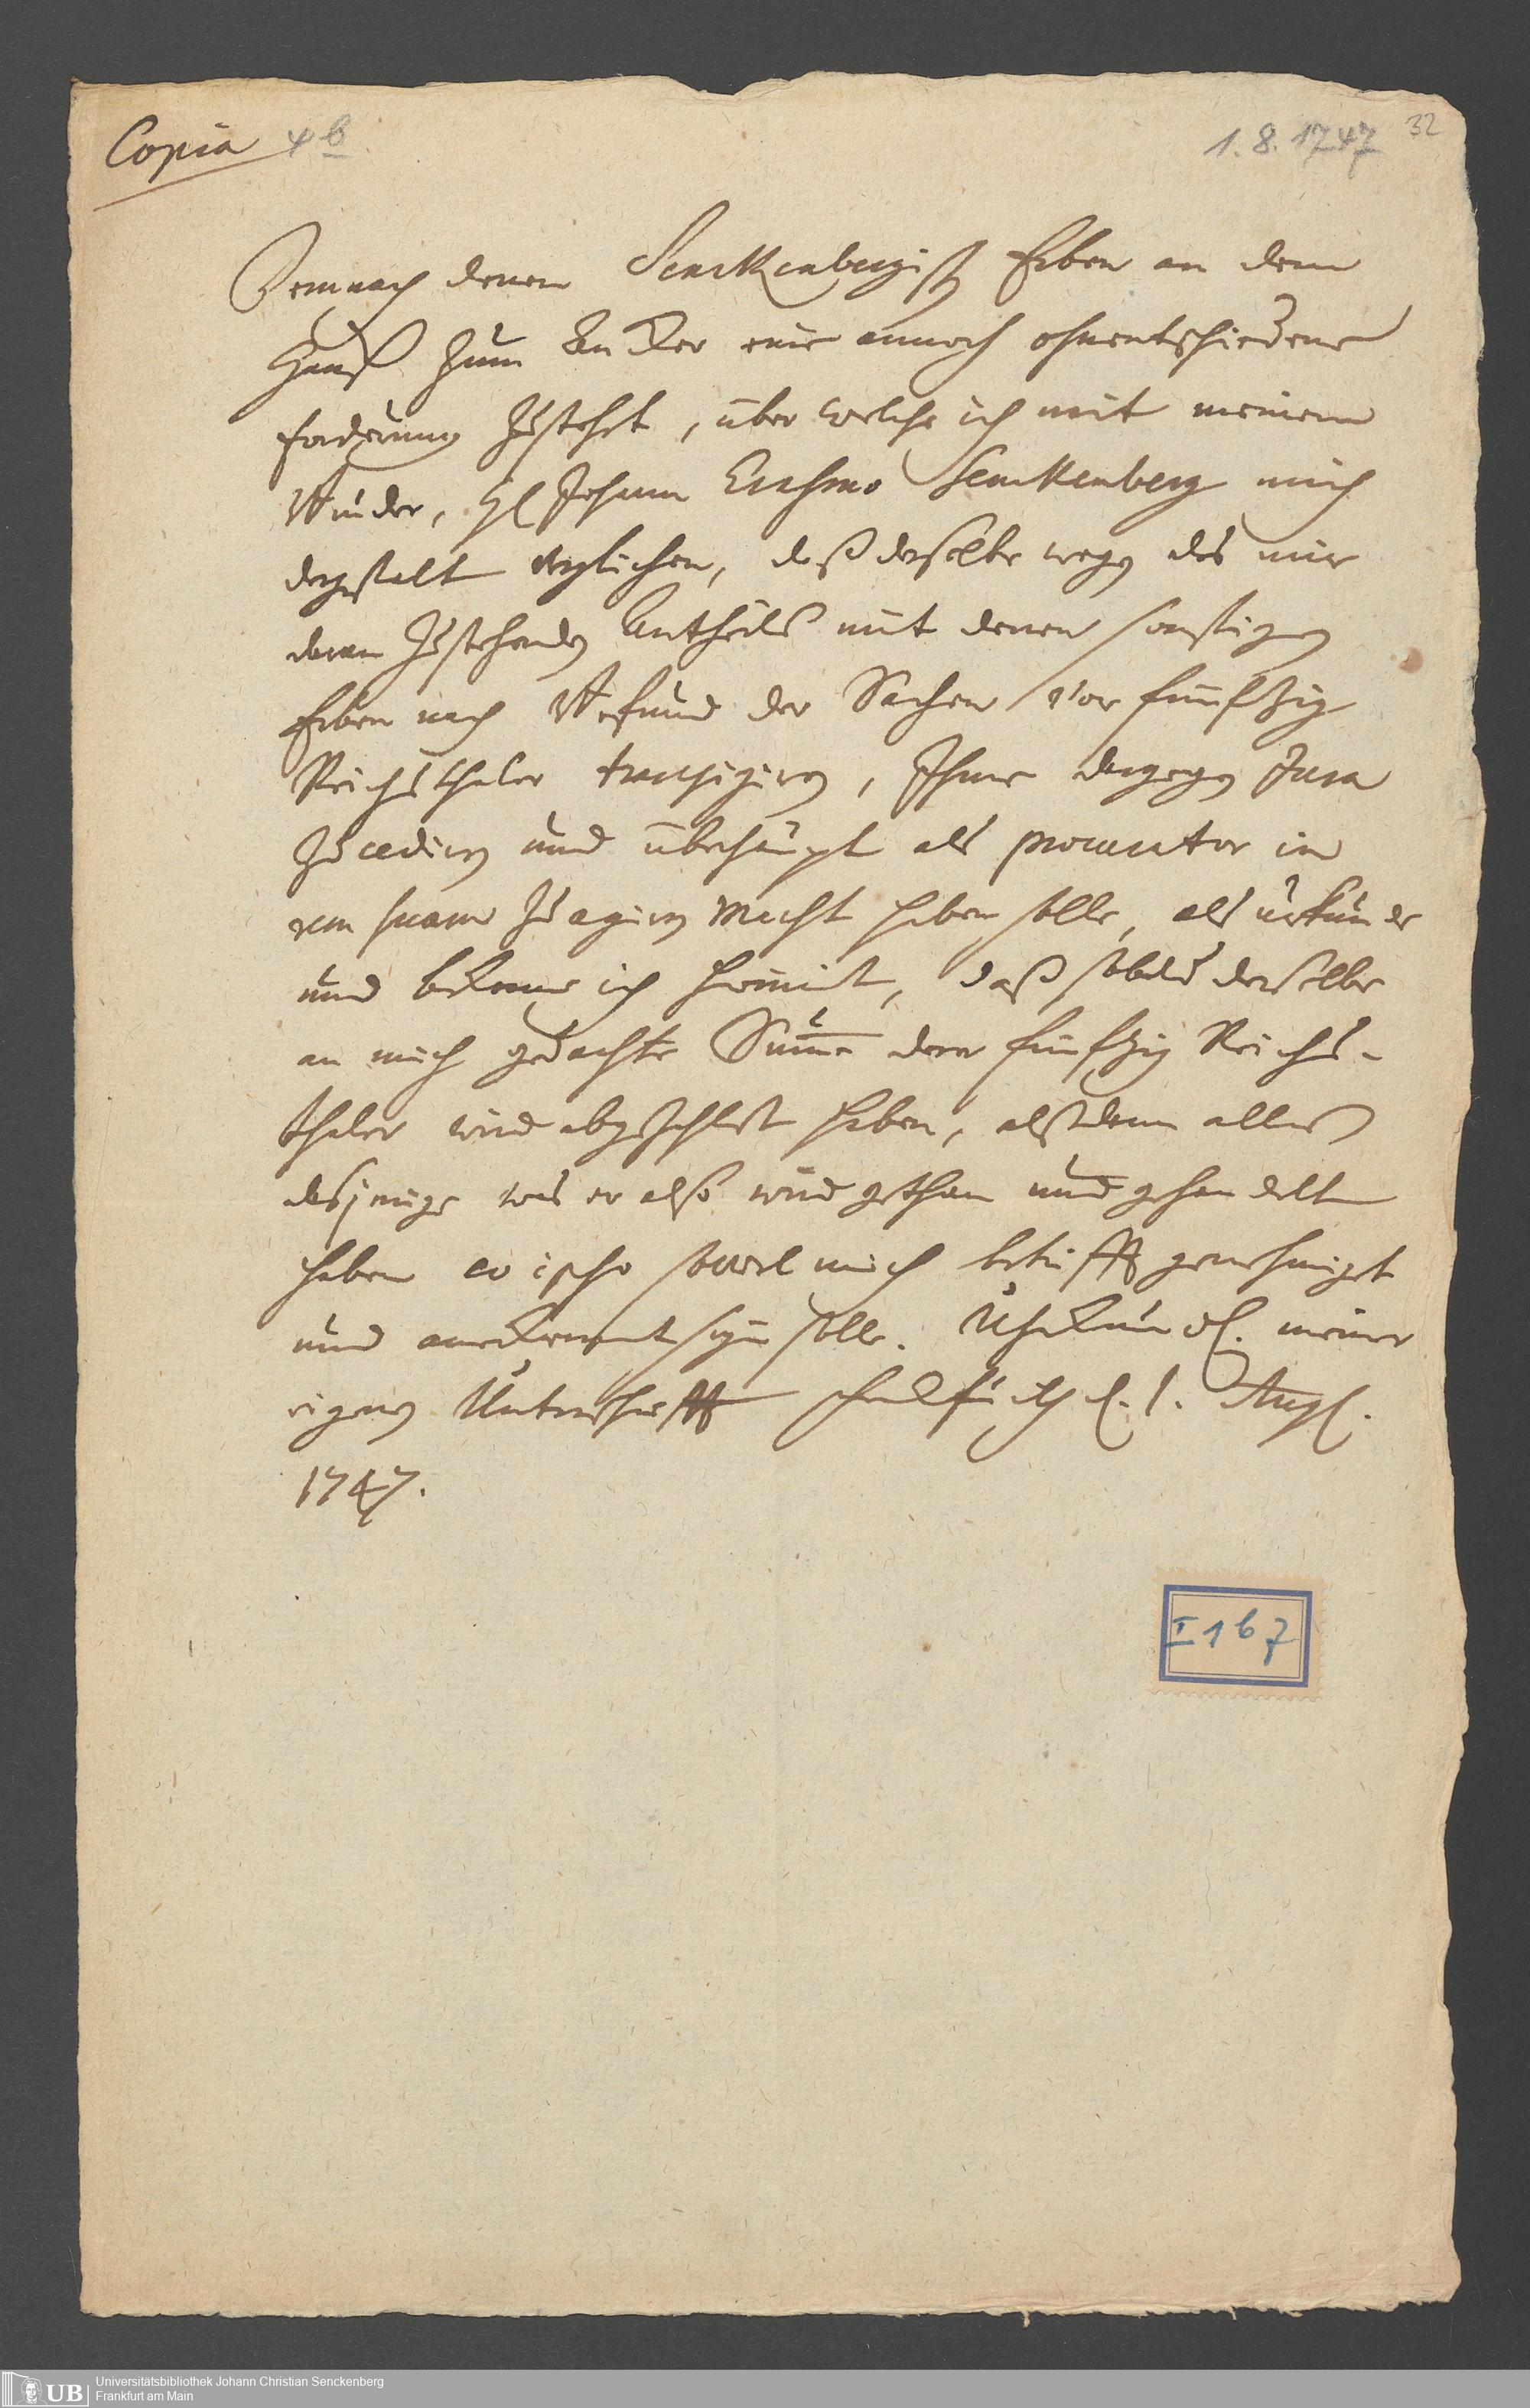 Copia 4 b
1.8.1747 32
Demnach denen Senckenbergisch Erben an dem
Hauß zum Ancker eine annoch ohnentschiedene
forderung zustehet, über welche ich mit meinem
Bruder, H Johann Erasmo Senckenberg mich
dergestalt verglichen, daß derselbe wegen des mir
daran zustehenden Antheils mit denen sonstigen
Erben nach Befund der Sachen vor funfzig
Reichsthaler transigiren, Ihme dargegen Jura
zu cediren und überhaupt als procurator in
rem suam zu agiren Macht haben solle, als urkunde
und bekenne ich hiermit, daß sobald derselbe
an mich gedachte Summa derer funfzig Reichs-
thaler wird abgezahlet haben, alsdann alles
dasjenige was er also wird gethan und gehandelt
haben eo ipso soviel mich betrifft genehmiget
und anerkennt seyn solle. Uhrkundl. meiner
eigenen Unterschrifft d. 1. Aug.
1747.
I 167
UB
Universitätsbibliothek Johann Christian Senckenberg
Frankfurt am Main